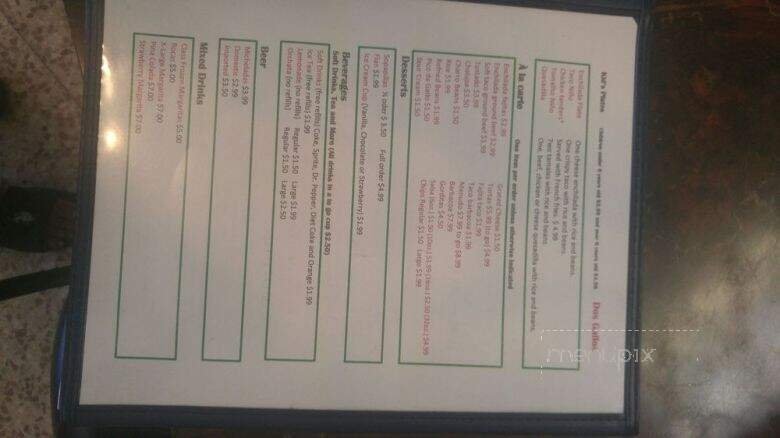 Dos Gallos
Kid's Plates Children under 6 years old $3.99 and over 6 years old $4.99
Enchilada Plate One cheese enchilada with rice and beans.
Taco Niño One crispy taco with rice and beans.
Chicken Tenders* Served with French fries. $ 4.99
Tamalito Niño Two tamales with rice and beans
Quesadilla One beef, chicken or cheese quesadilla with rice and beans.
À la carte One item per order unless otherwise indicated
Enchilada fajitas $3.99
Enchilada ground beef $2.99
Soft taco ground beef $1.99
Tamale $1.99
Chalupa $2.50
Charro Beans $1.50
Rice $1.99
Refried Beans $1.99
Pico de Gallo $1.50
Sour Cream $1.50
Grated Cheese $1.50
Tortas $5.99 (to go) $4.99
Fajita taco $1.99
Taco barbacoa $1.99
Menudo $7.99 to go $8.99
Barbacoa $7.99
Gorditas $4.50
Salsa (6oz) $1.50 (10oz) $1.99 (16oz) $2.50 (32oz) $4.99
Chips Regular $1.50 Large $1.99
Desserts
Sopapillas ½ oder $ 3.50 Full order $4.99
Flan $2.99
Ice Cream Cup (Vanilla, Chocolate or Strawberry) $1.99
Beverages
Soft Drinks, Tea and More (All drinks in a to go cup $2.50)
Soft Drinks (free refills) Coke, Sprite, Dr. Pepper, Diet Coke and Orange $1.99
Ice Tea (free refills) $1.99
Lemonade (no refills) Regular $1.50 Large $1.99
Orchata (no refills) Regular $1.50 Large $2.50
Beer
Micheladas $3.99
Domestic $2.99
Imported $3.50
Mixed Drinks
Class Frozen Margaritas $5.50
Rocas $5.00
X-Large Margarita $7.00
Pina Colada $7.00
Strawberry Margarita $7.00
menupix